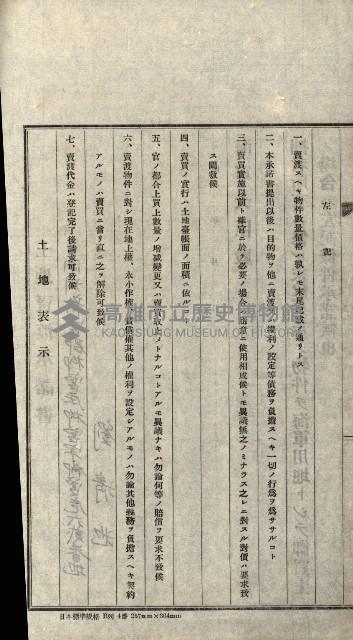 左記
一、賣渡スヘキ物件數量價格ハ孰レモ末尾記載ノ通リトス
二、本承諾書提出以後ハ目的物ヲ他ニ賣渡シ權利ノ設定等債務ヲ負擔スヘキ一切ノ行爲ヲ爲ササルコト
三、賣買實施以前ト雖官ニ於テ必要ノ場合ハ隨意ニ使用相成候トモ異議無之ノミナラス之レニ對スル對價ハ要求致
ス間敷候
四、賣買ノ實行ハ土地臺帳面ノ面積ニ依ル
五、官ノ都合上買上數量ノ增減變更又ハ賣買取止メトナルコトアルモ異議ナキハ勿論何等ノ賠償ヲ要求不致候
六、賣渡物件ニ對シ現在地上權、永小作權、賃借權其他ノ權利ヲ設定シアルモノハ勿論其他義務ヲ負擔スヘキ契約
アルモノハ賣買ニ當リ直ニ之ヲ解除可致候
七、賣渡代金ハ登記完了後請求可致候
土地表示
高雄市立歷史博物館
KAOHSIUNG MUSEUM OF HISTORY
日本標準規格 B列 4番 257mm×364mm